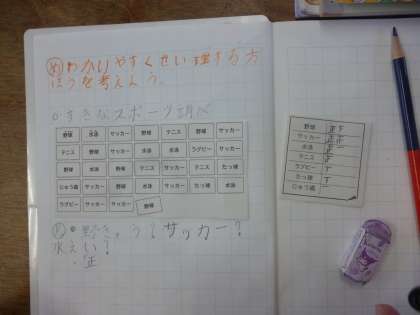 め わかりやすくせい理する方
ほうを考えよう。
すきなスポーツ調べ
野球 水泳 サッカー 野球 テニス 野球 サッカー
テニス 野球 サッカー 水泳 水泳 ラグビー サッカー
水泳 サッカー 野球 テニス サッカー たっ球 野球
じゅう道 サッカー 野球 水泳 サッカー たっ球 水泳
ラグビー サッカー サッカー 野球
野きゅう?サッカー?
水えい?
・正
野球 正下
サッカー
水泳 正
テニス
ラグビー T
たっ球 T
じゅう道